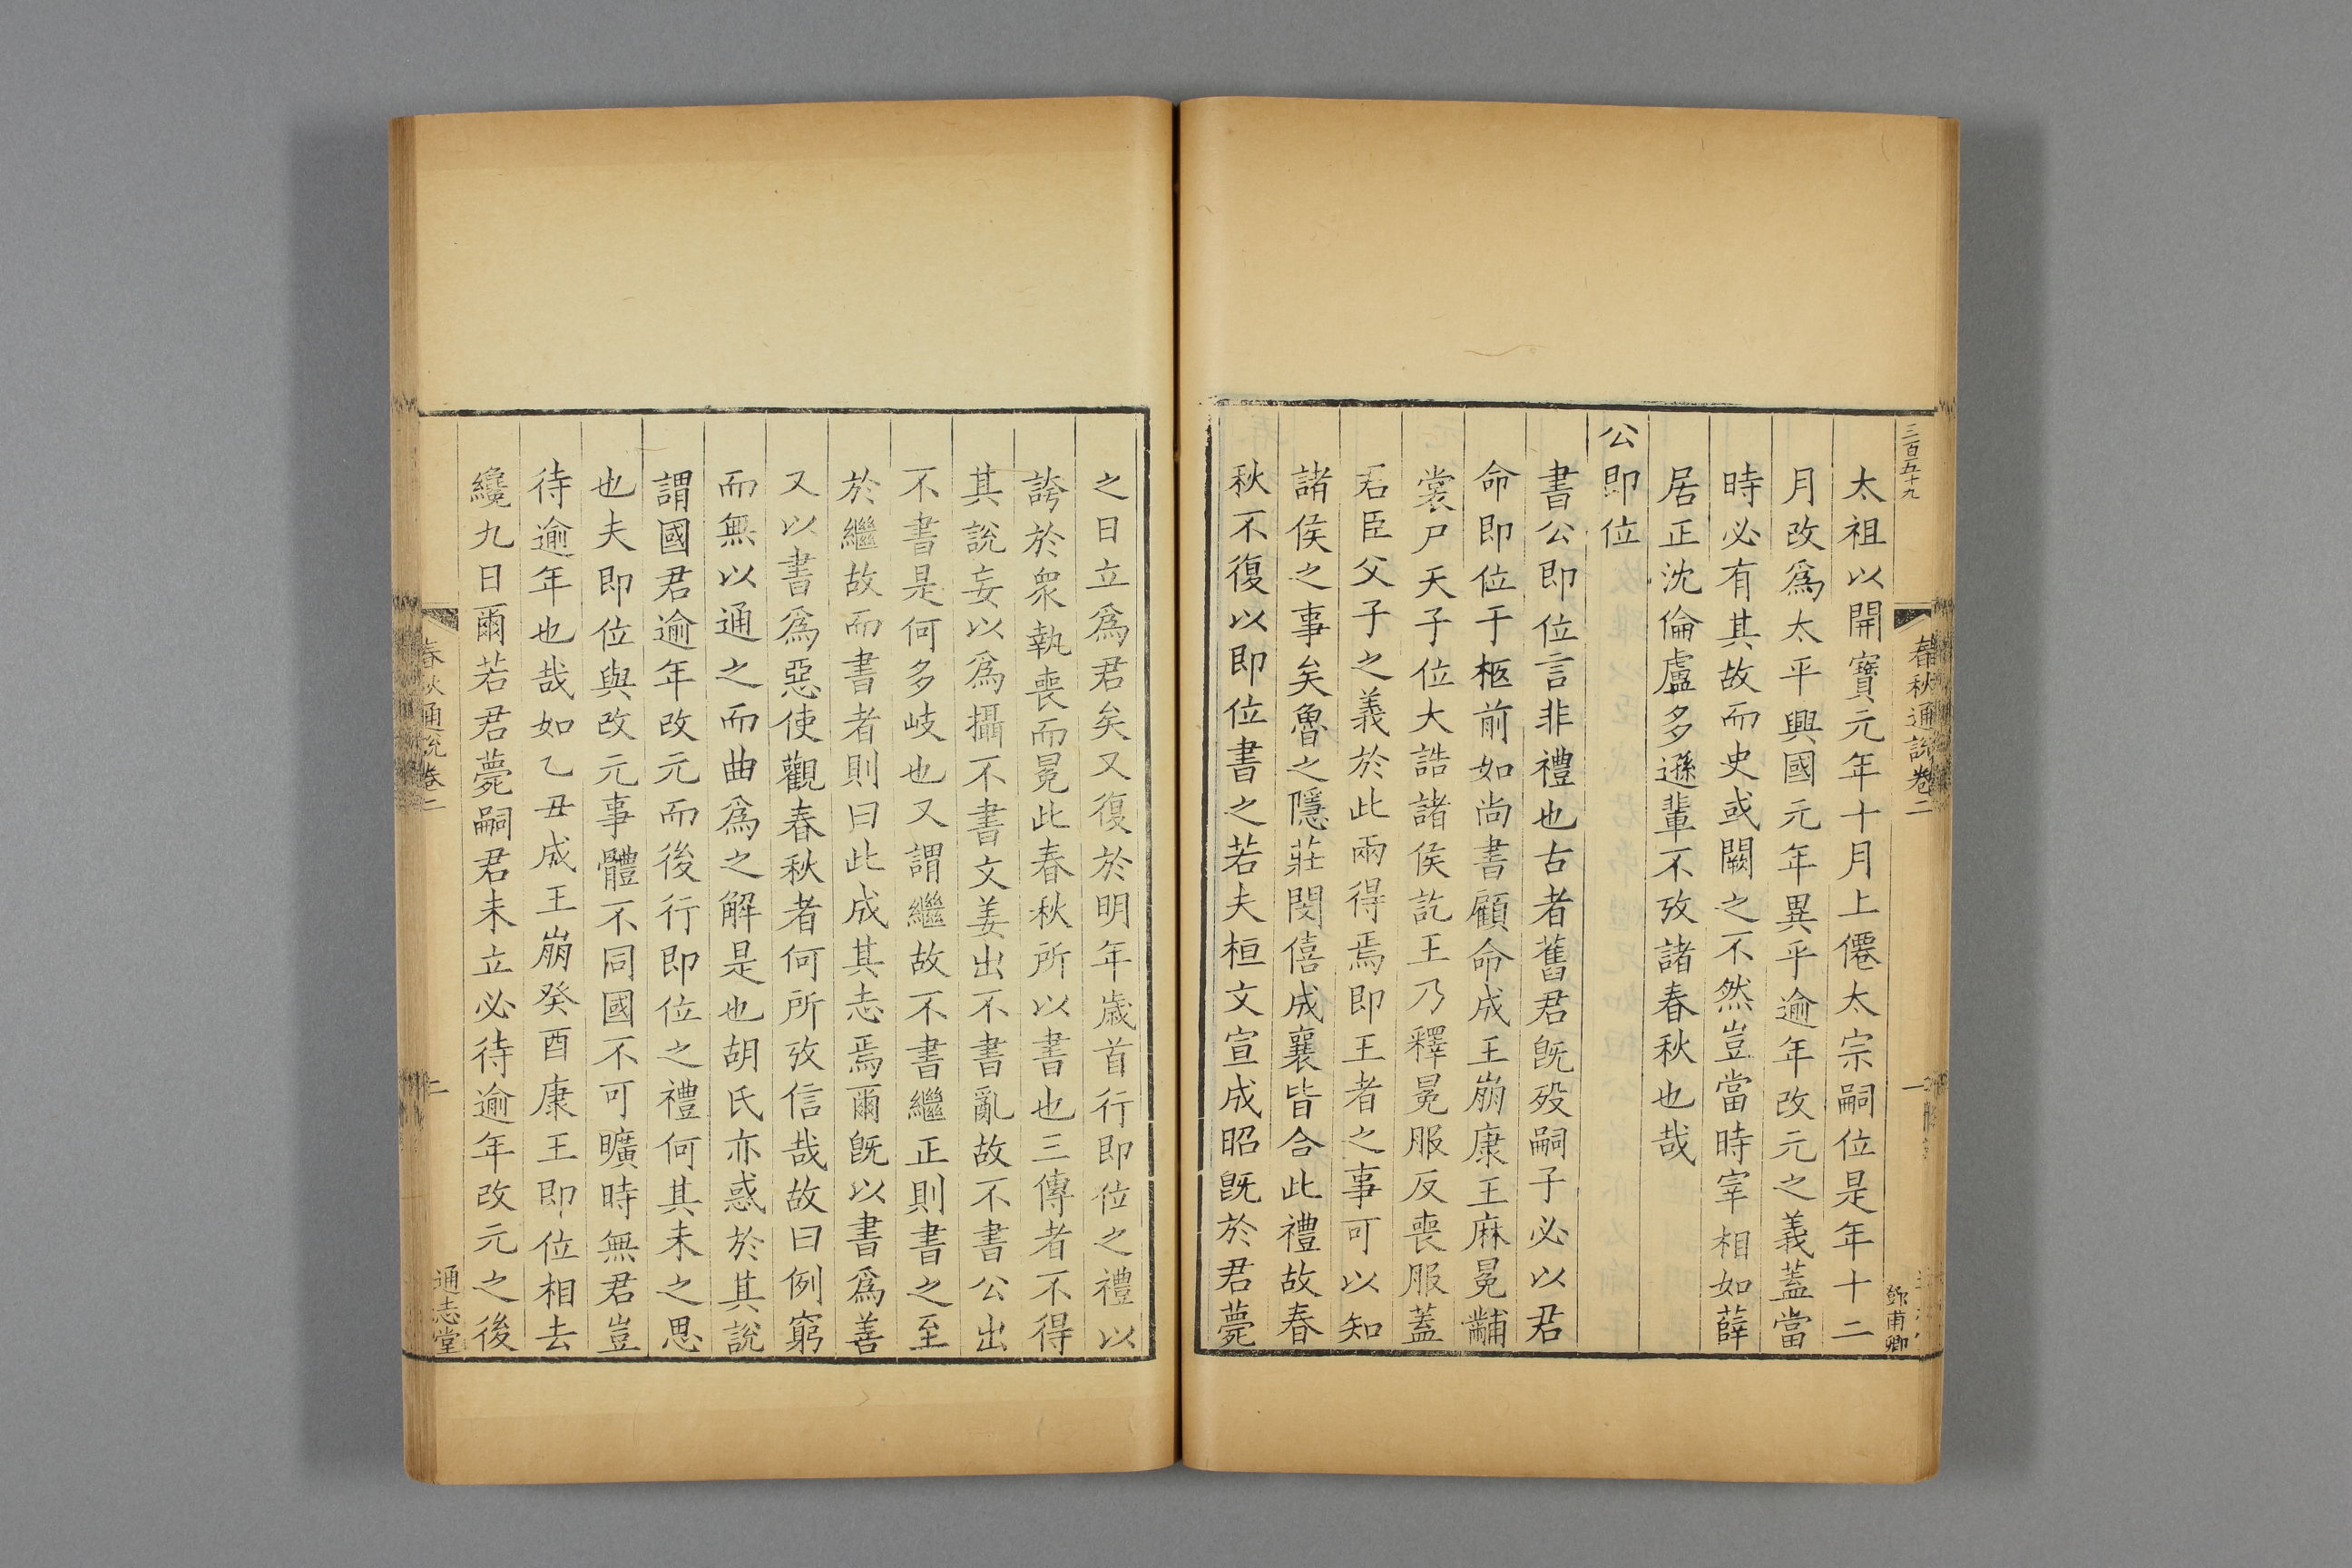 三百五十九
春秋通說卷二
一
鄧甫卿
太祖以開寶元年十月上僊太宗嗣位是年十二
月改爲太平興國元年異乎逾年改元之義蓋當
時必有其故而史或闕之不然豈當時宰相如薛
居正沈倫盧多遜輩不攷諸春秋也哉
公即位
書公即位言非禮也古者舊君既殁嗣子必以君
命即位于柩前如尚書顧命成王崩康王麻冕黼
裳尸天子位大誥諸侯訖王乃釋冕服反喪服蓋
君臣父子之義於此兩得焉即王者之事可以知
諸侯之事矣魯之隱莊閔僖成襄皆合此禮故春
秋不復以即位書之若夫桓文宣成昭既於君薨
之日立爲君矣又復於明年歲首行即位之禮以
誇於眾執喪而冕此春秋所以書也三傳者不得
其說妄以爲攝不書文姜出不書亂故不書公出
不書是何多岐也又謂繼故不書繼正則書之至
於繼故而書者則曰此成其志焉爾既以書爲善
又以書爲惡使觀春秋者何所攷信哉故曰例窮
而無以通之而曲爲之解是也胡氏亦惑於其說
謂國君逾年改元而後行即位之禮何其未之思
也夫即位與改元事體不同國不可曠時無君豈
待逾年也哉如乙丑成王崩癸酉康王即位相去
纔九日爾若君薨嗣君未立必待逾年改元之後
春秋通說卷二
二
通志堂